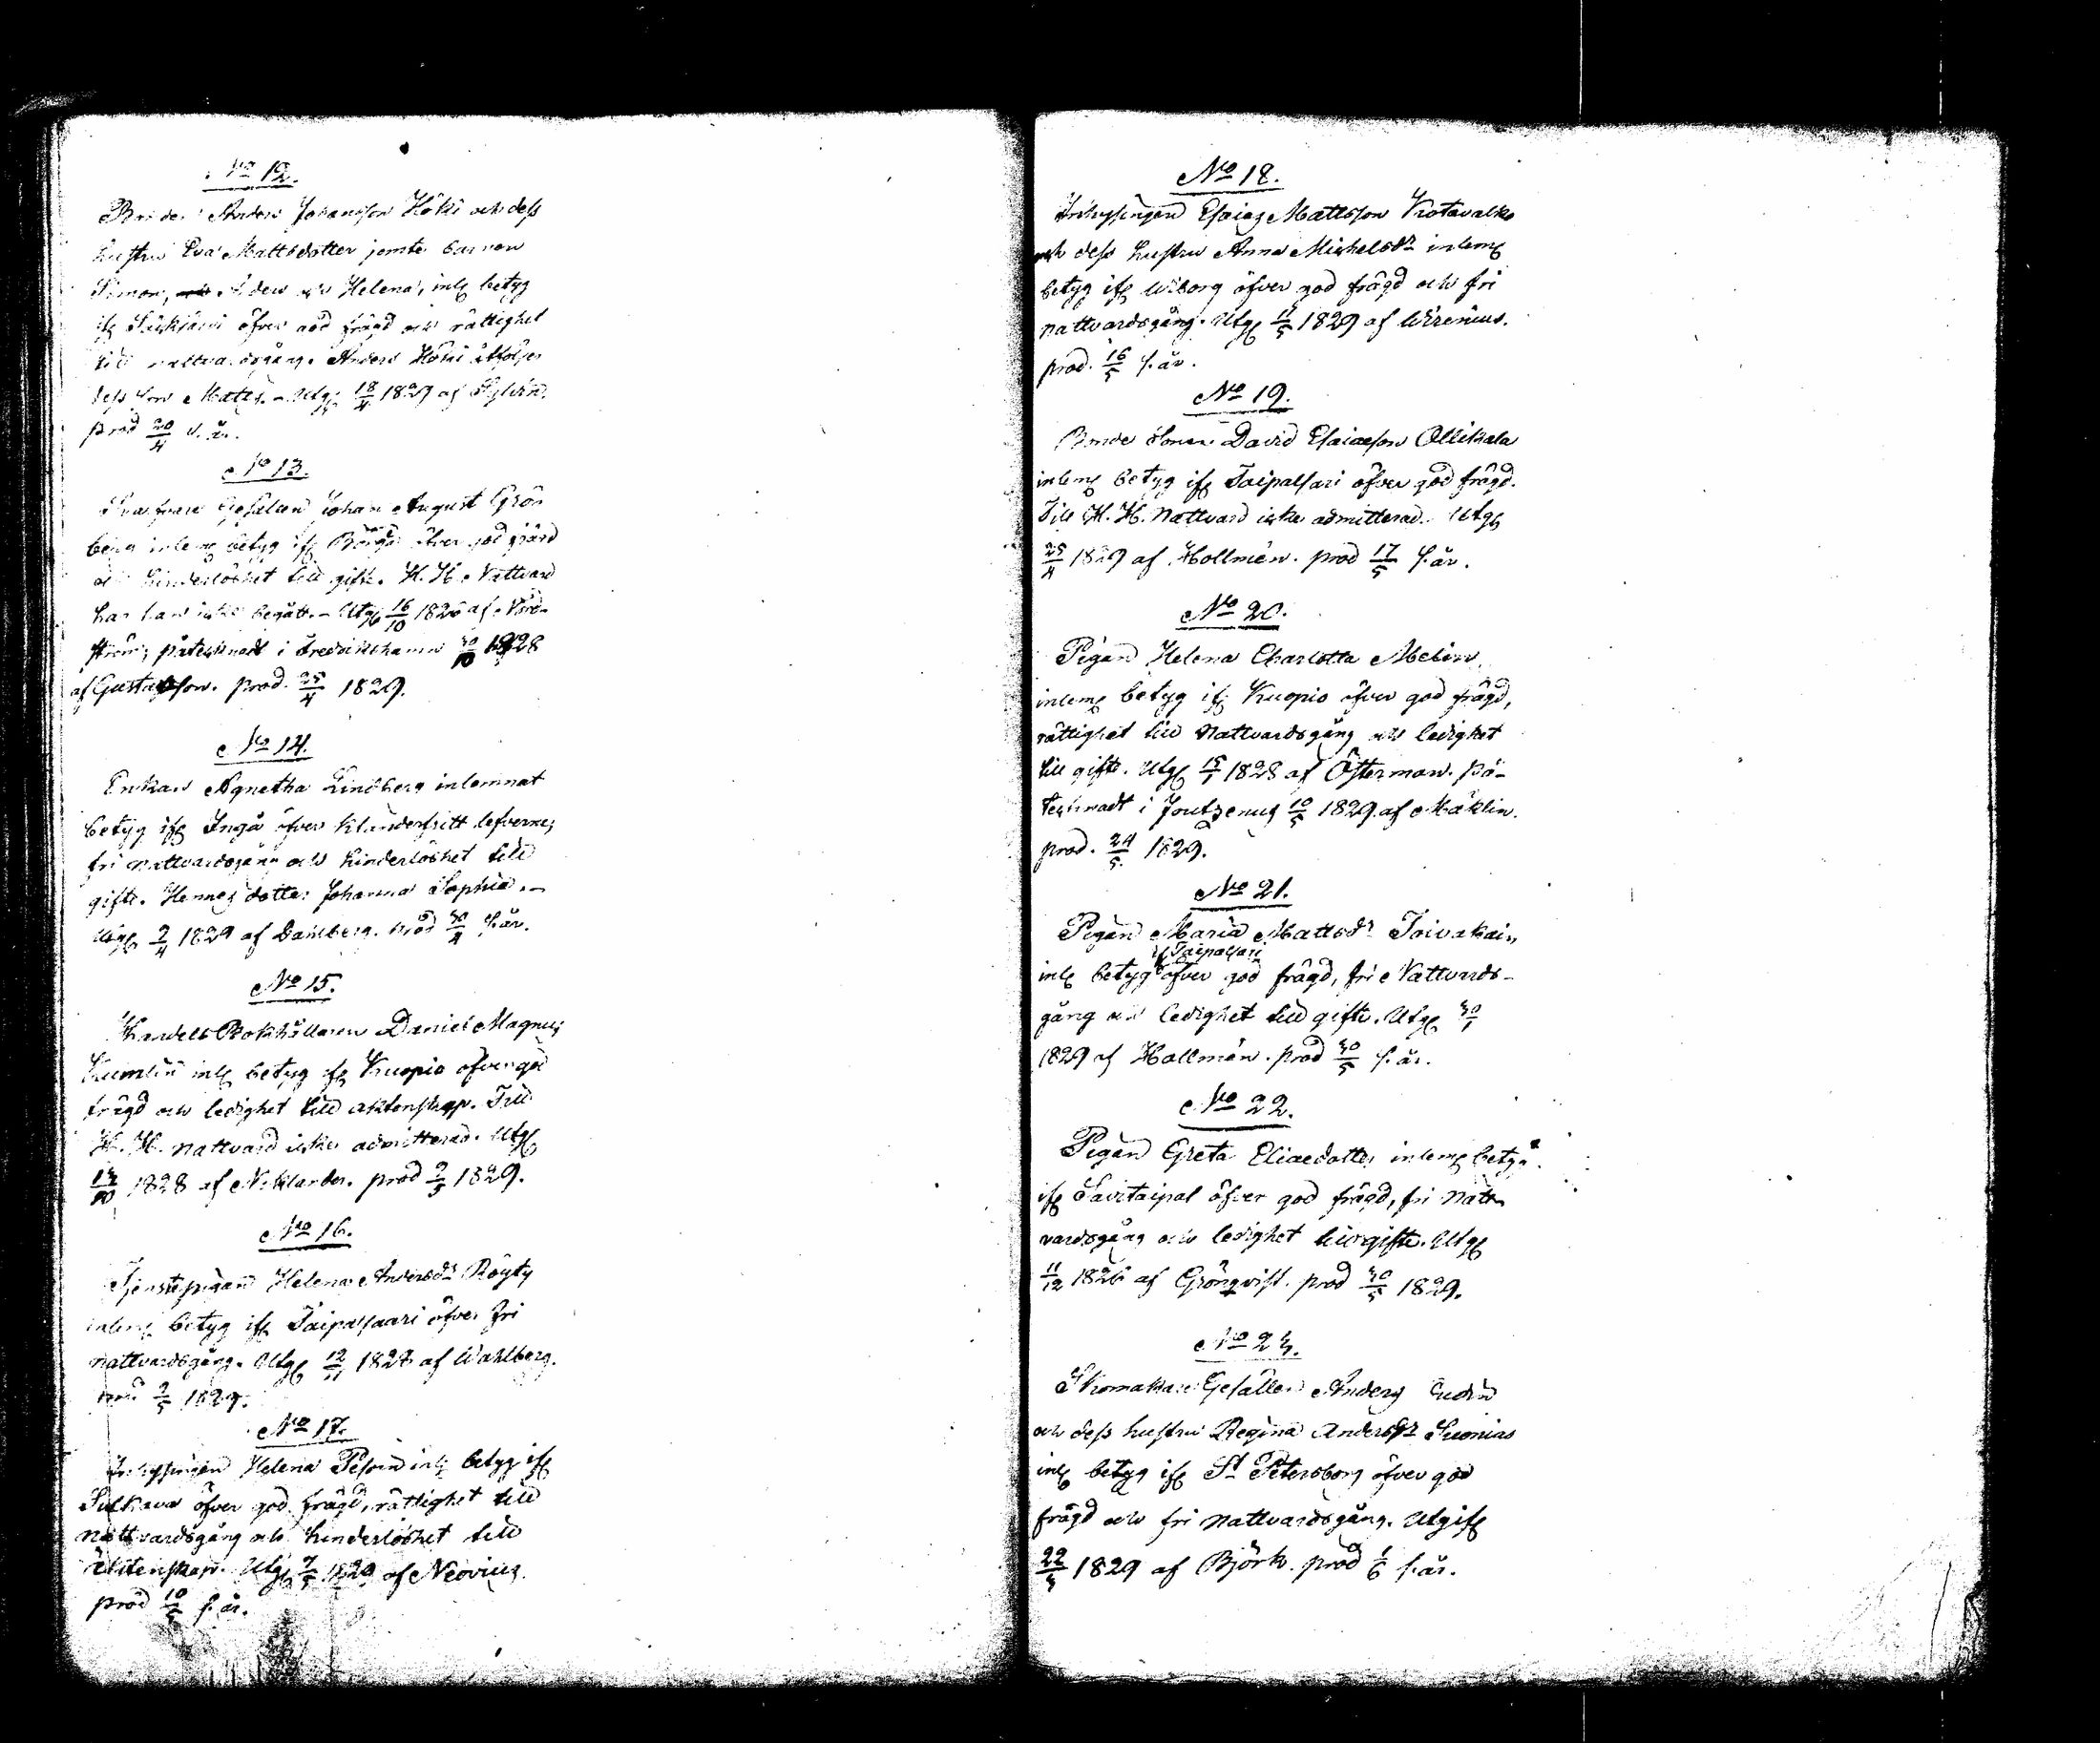 No 12.
Bonden Anders Johansson Höki och dess
hustru Eva Mattsdotter jemte barnen
Simon, Anders och Helena, inl. betyg
ifr. öfver god frägd och rättighet
till nattvardsgång. Anders Höki åtföljer
dess son Matts. - Utg. 18/4 1829 af
prod 20/4 s. år.
No 13.
Gesällen Johan August Grön
berg inlemn. betyg ifr. Borgå öfver god
och hinderlöshet till gifte. H. H. Nattvard
har han icke begått. - Utg. 16/10 1828 af Norr-
ström; påtecknadt i Fredrikshamn 30/10 1828
af Gustafsson. prod. 25/4 1829.
No 14.
Enkan Agnetha Lindberg inlemnat
betyg ifr. Ingå öfver klanderfritt lefverne,
fri nattvardsgång och hinderlöshet till
gifte. Hennes dotter Johanna Sophia. -
Utg. 2/4 1829 af Damberg. prod 30/4 s. år.
No 15.
Handels Bokhållaren Daniel Magnus
Kumlin inl. betyg ifr. Kuopio öfver god
frägd och ledighet till äktenskap. Till
H. H. nattvard icke admitterad. Utg.
13/10 1828 af Niklander. prod 2/5 1829.
No 16.
Tjenstepigan Helena Andersdr Röyty
inlemn. betyg ifr. Taipalsaari öfver fri
nattvardsgång. Utg. 12/11 1828 af Wahlberg.
prod 2/5 1829.
No 17.
Inhysingen Helena Pesoin inl. betyg ifr.
Sulkava öfver god frägd, rättighet till
nattvardsgång och hinderlöshet till
äktenskap. Utg. 7/5 1829 af Neovius.
prod 10/5 s. år.
No 18.
Inhysingen Esaias Mattsson Kotavalko
och dess hustru Anna Michelsdr inlemn.
betyg ifr. Wiborg öfver god frägd och fri
nattvardsgång. Utg. 11/5 1829 af Wirenius.
prod. 16/5 s. år.
No 19.
Bonde Sonen David Esaiaeson Ollikala
inlemn. betyg ifr. Taipalsari öfver god frägd.
Till H. H. Nattvard icke admitterad. Utg.
25/4 1829 af Hollmén. prod 17/5 s. år.
No 20.
Pigan Helena Charlotta Melin
inlemn. betyg ifr. Kuopio öfver god frägd,
rättighet till Nattvardsgång och ledighet
till gifte. Utg. 15/1 1828 af Österman. på-
tecknadt i Joutzenus 10/5 1829 af Mäklin.
prod. 24/5 1829.
No 21.
Pigan Maria Mattsdr Toivakain
inl. betyg ifr. Taipalsari öfver god frägd, fri Nattvards-
gång och ledighet till gifte. Utg. 30/1
1829 af Hollmén. prod 30/5 s. år.
No 22.
Pigan Greta Eliaedotter inlemn. betyg
ifr. Savitaipal öfver god frägd, fri natt
vardsgång och ledighet till gifte. Utg.
11/12 1826 af Grönqvist. prod 30/5 1829.
No 23.
Skomakare Gesällen Anders
och dess hustru Regina Andersdr Suonias
inl. betyg ifr. St Petersborg öfver god
frägd och fri nattvardsgång. Utgifr.
22/3 1829 af Björk. prod 1/6 s. år.